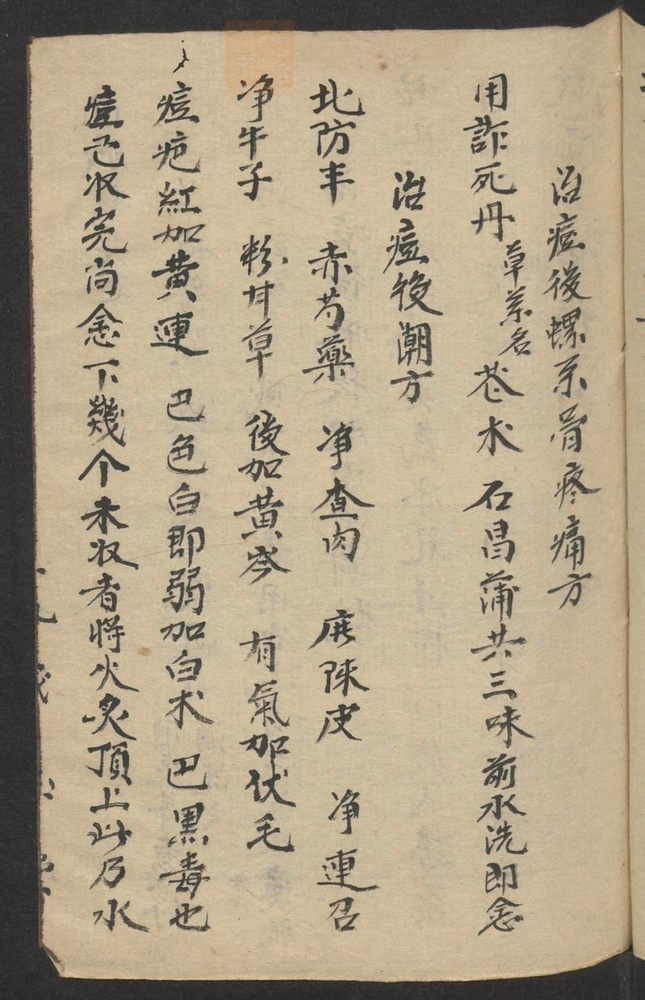 治痘後螺系骨疼痛方
用詐死丹草茶名苍术 石昌蒲共三味前水洗即愈
治痘後潮方
北防丰 赤芍藥 净查肉 庅陳皮 净連召
净牛子 粉甘草 後加黄岑 有氣加伏毛
痘疤紅加黄連 巴色白即弱加白术 巴黑毒也
痘已收完尚愈下幾个未收者將火炙頂上此乃水